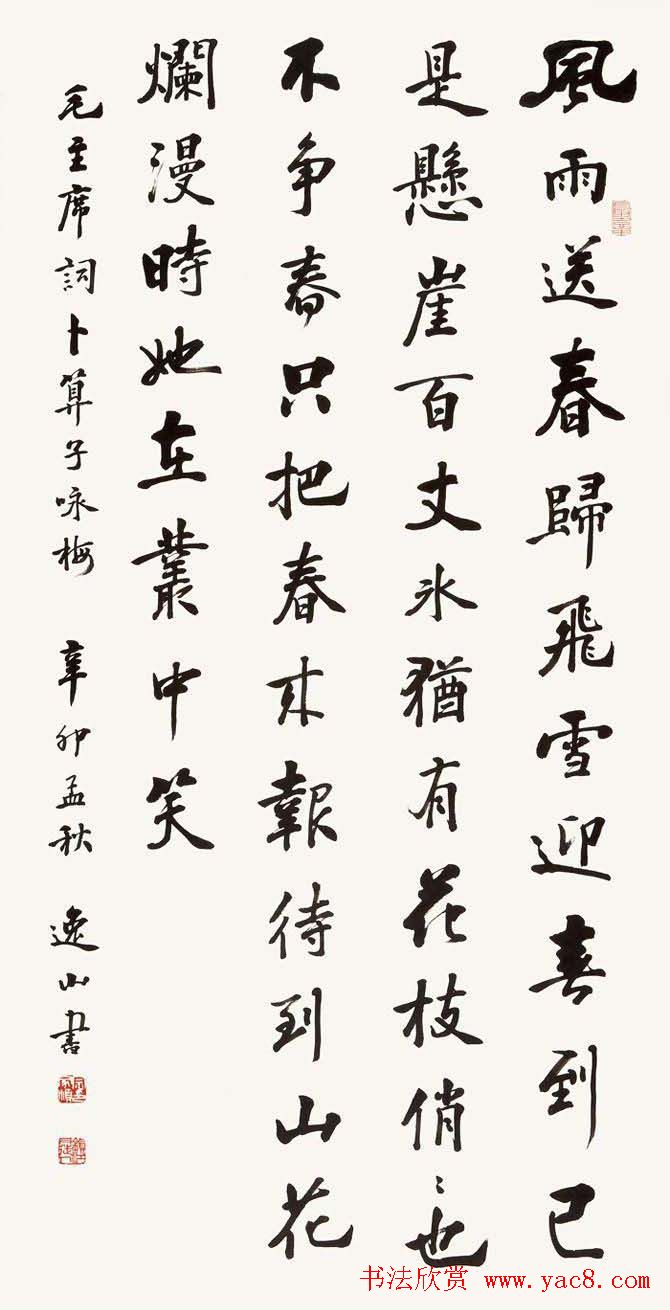 風雨送春歸飛雪迎春到已
是懸崖百丈冰猶有花枝俏〻也
不争春只把春来報待到山花
爛漫時她在叢中笑
毛主席詞卜算子咏梅 辛卯孟秋 逸山書
书法欣赏 www.yac8.com